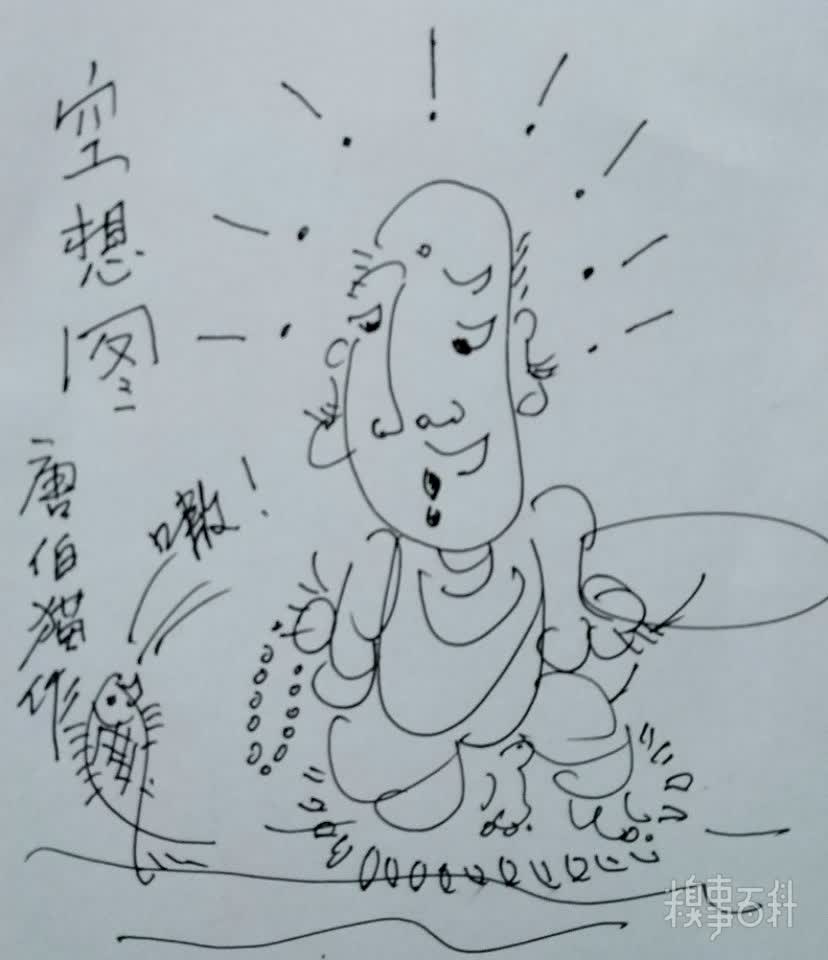 空想图
唐伯猫作
嗷!
糗事百科